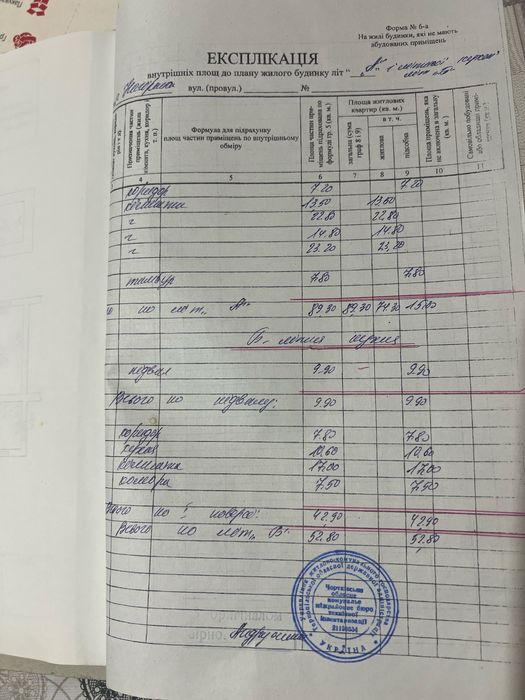 Форма № 6-а
На жилі будинки, які не мають
вбудованих приміщень
ЕКСПЛІКАЦІЯ
внутрішніх площ до плану жилого будинку літ "А" і літньої кухні
літ "Б"
вул. (провул.) №
Призначення частин приміщень (жила кімната, кухня, коридор і т. п.)
Формула для підрахунку площ частин приміщень по внутрішньому обміру
Площа частин приміщень підрахована по формулі гр. 5 (кв. м.)
Площа житлових квартир (кв. м.)
загальна (сума граф 8 і 9)
в т. ч.
житлова
підсобна
Площа приміщень, яка не включена в загальну (кв. м.)
Самовільно побудовані
4 5 6 7 8 9 10 11
коридор 7.20 7.20
кімната 13.50 13.50
" 22.80 22.80
" 14.80 14.80
" 23.20 23.20
тамбур 7.80 7.80
по літ. "А" 89.30 89.30 74.30 15.00
Б - літня кухня
підвал 9.90 - 9.90
Всього по підвалу: 9.90 9.90
коридор 7.80 7.80
кухня 10.60 10.60
кімната 17.00 17.00
комора 7.50 7.50
Всього по 1 поверсі: 42.90 42.90
Всього по літ. "Б" 52.80 52.80
Чортківське
обласне
комунальне
міжрайонне бюро
технічної
інвентаризації
УКРАЇНА